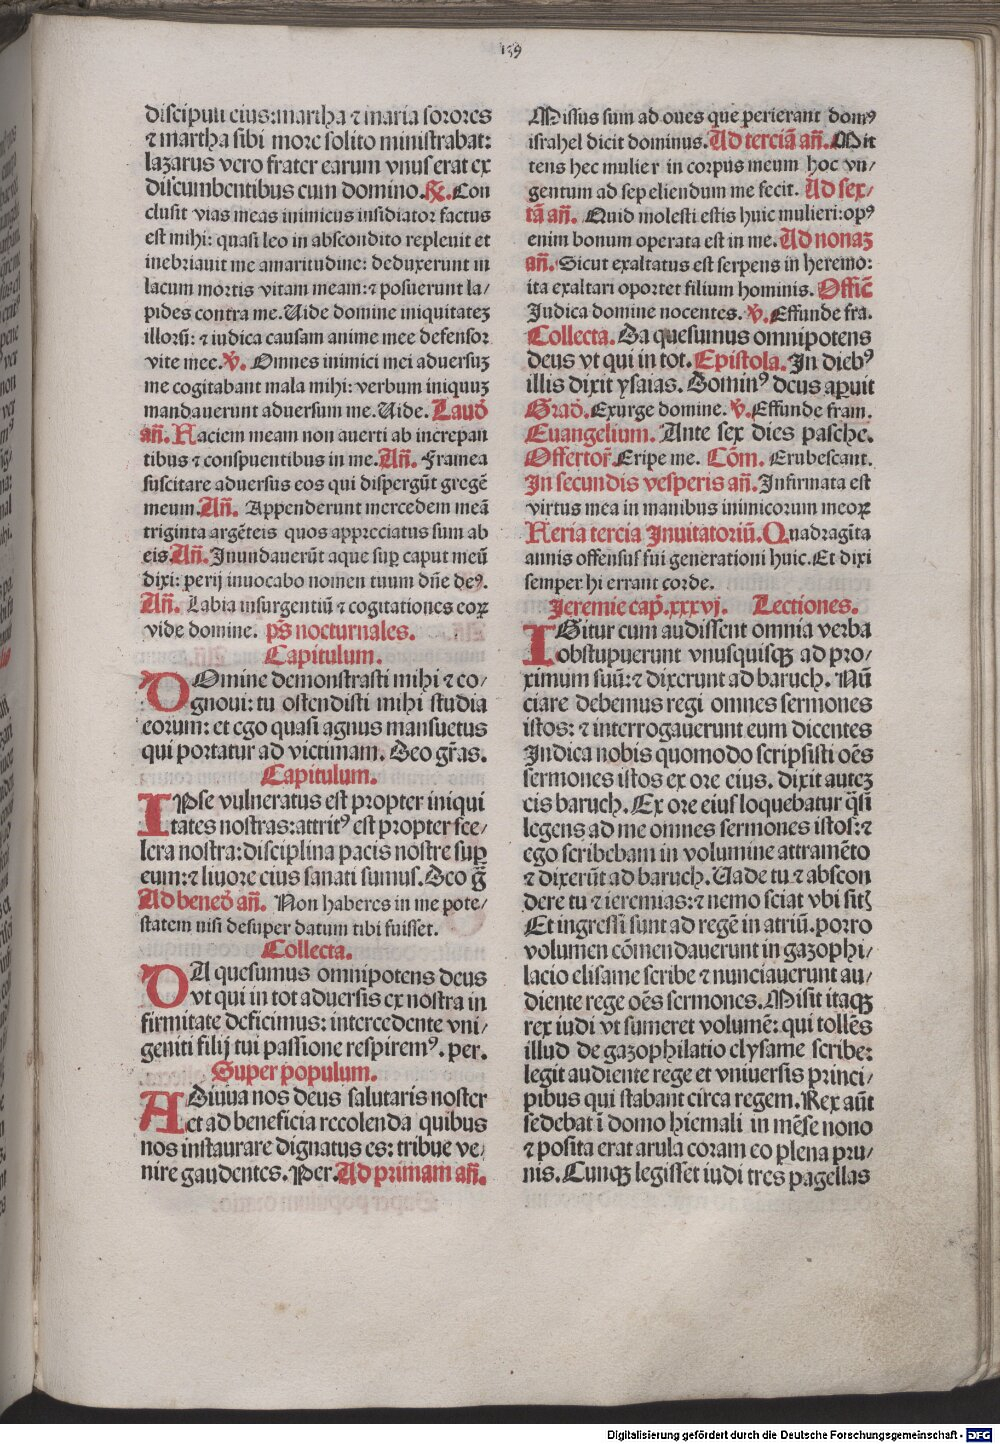 139
discipuli eius: martha ⁊ maria sorores
⁊ martha sibi more solito ministrabat:
lazarus vero frater earum vnus erat ex
discumbentibus cum domino. ℟. Con
clusit vias meas inimicus insidiator factus
est mihi: quasi leo in abscondito repleuit et
inebriauit me amaritudine: deduxerunt in
lacum mortis vitam meam: ⁊ posuerunt la/
pides contra me. Uide domine iniquitateꝫ
illorū: ⁊ iudica causam anime mee defensor
vite mee. ℣. Omnes inimici mei aduersuꝫ
me cogitabant mala mihi: verbum iniquuꝫ
mandauerunt aduersum me. Uide. Laud̄
añ. Faciem meam non auerti ab increpan
tibus ⁊ conspuentibus in me. Añ. Framea
suscitare aduersus eos qui dispergūt gregē
meum. Añ. Appenderunt mercedem meā
triginta argēteis quos appreciatus sum ab
eis. Añ. Inundauerūt aque suꝑ caput meū
dixi: perij inuocabo nomen tuum dñe deꝰ.
Añ. Labia insurgentiū ⁊ cogitationes eoꝝ
vide domine. p̄s nocturnales.
Capitulum.
DOmine demonstrasti mihi ⁊ co/
gnoui: tu ostendisti mihi studia
eorum: et ego quasi agnus mansuetus
qui portatur ad victimam. Deo gr̄as.
Capitulum.
IPse vulneratus est propter iniqui
tates nostras: attritꝰ est propter sce/
lera nostra: disciplina pacis nostre suꝑ
eum: ⁊ liuore eius sanati sumus. Deo g̃
Ad bened̄ añ. Non haberes in me pote/
statem nisi desuper datum tibi fuisset.
Collecta.
DA quesumus omnipotens deus
vt qui in tot aduersis ex nostra in
firmitate deficimus: intercedente vni/
geniti filij tui passione respiremꝰ. per.
Super populum.
ADiuua nos deus salutaris noster
et ad beneficia recolenda quibus
nos instaurare dignatus es: tribue ve/
nire gaudentes. Per. Ad primam añ.
Missus sum ad oues que perierant domꝰ
israhel dicit dominus. Ad terciā añ. Mit
tens hec mulier in corpus meum hoc vn/
gentum ad sepeliendum me fecit. Ad sex/
tā añ. Quid molesti estis huic mulieri: opꝰ
enim bonum operata est in me. Ad nonaꝫ
añ. Sicut exaltatus est serpens in heremo:
ita exaltari oportet filium hominis. Offic̄
Iudica domine nocentes. ℣. Effunde fra.
Collecta. Da quesumus omnipotens
deus vt qui in tot. Epistola. In diebꝰ
illis dixit ysaias. Dominꝰ deus aperuit
Grad̄. Exurge domine. ℣. Effunde fram.
Euangelium. Ante sex dies pasche.
Offertor̄. Eripe me. Cōm. Erubescant.
In secundis vesperis añ. Infirmata est
virtus mea in manibus inimicorum meoꝝ
Feria tercia Inuitatoriū. Quadragīta
annis offensus fui generationi huic. Et dixi
semper hi errant corde.
Jeremie cap̄. xxxvj. Lectiones.
IGitur cum audissent omnia verba
obstupuerunt vnusquisqꝫ ad pro/
ximum suū: ⁊ dixerunt ad baruch. Nū
ciare debemus regi omnes sermones
istos: ⁊ interrogauerunt eum dicentes
Indica nobis quomodo scripsisti oēs
sermones istos ex ore eius. dixit auteꝫ
eis baruch. Ex ore eius loquebatur q̄si
legens ad me omnes sermones istos: ⁊
ego scribebam in volumine attramēto
⁊ dixerūt ad baruch. Uade tu ⁊ abscon
dere tu ⁊ ieremias: ⁊ nemo sciat vbi sitꝭ
Et ingressi sunt ad regē in atriū. porro
volumen cōmendauerunt in gazophi/
lacio elisame scribe ⁊ nunciauerunt au/
diente rege oēs sermones. Misit itaqꝫ
rex iudi vt sumeret volumē: qui tollēs
illud de gazophilatio elysame scribe:
legit audiente rege et vniuersis princi/
pibus qui stabant circa regem. Rex aūt
sedebat ī domo hiemali in mēse nono
⁊ posita erat arula coram eo plena pru/
nis. Cunqꝫ legisset iudi tres pagellas
Digitalisierung gefördert durch die Deutsche Forschungsgemeinschaft - DFG